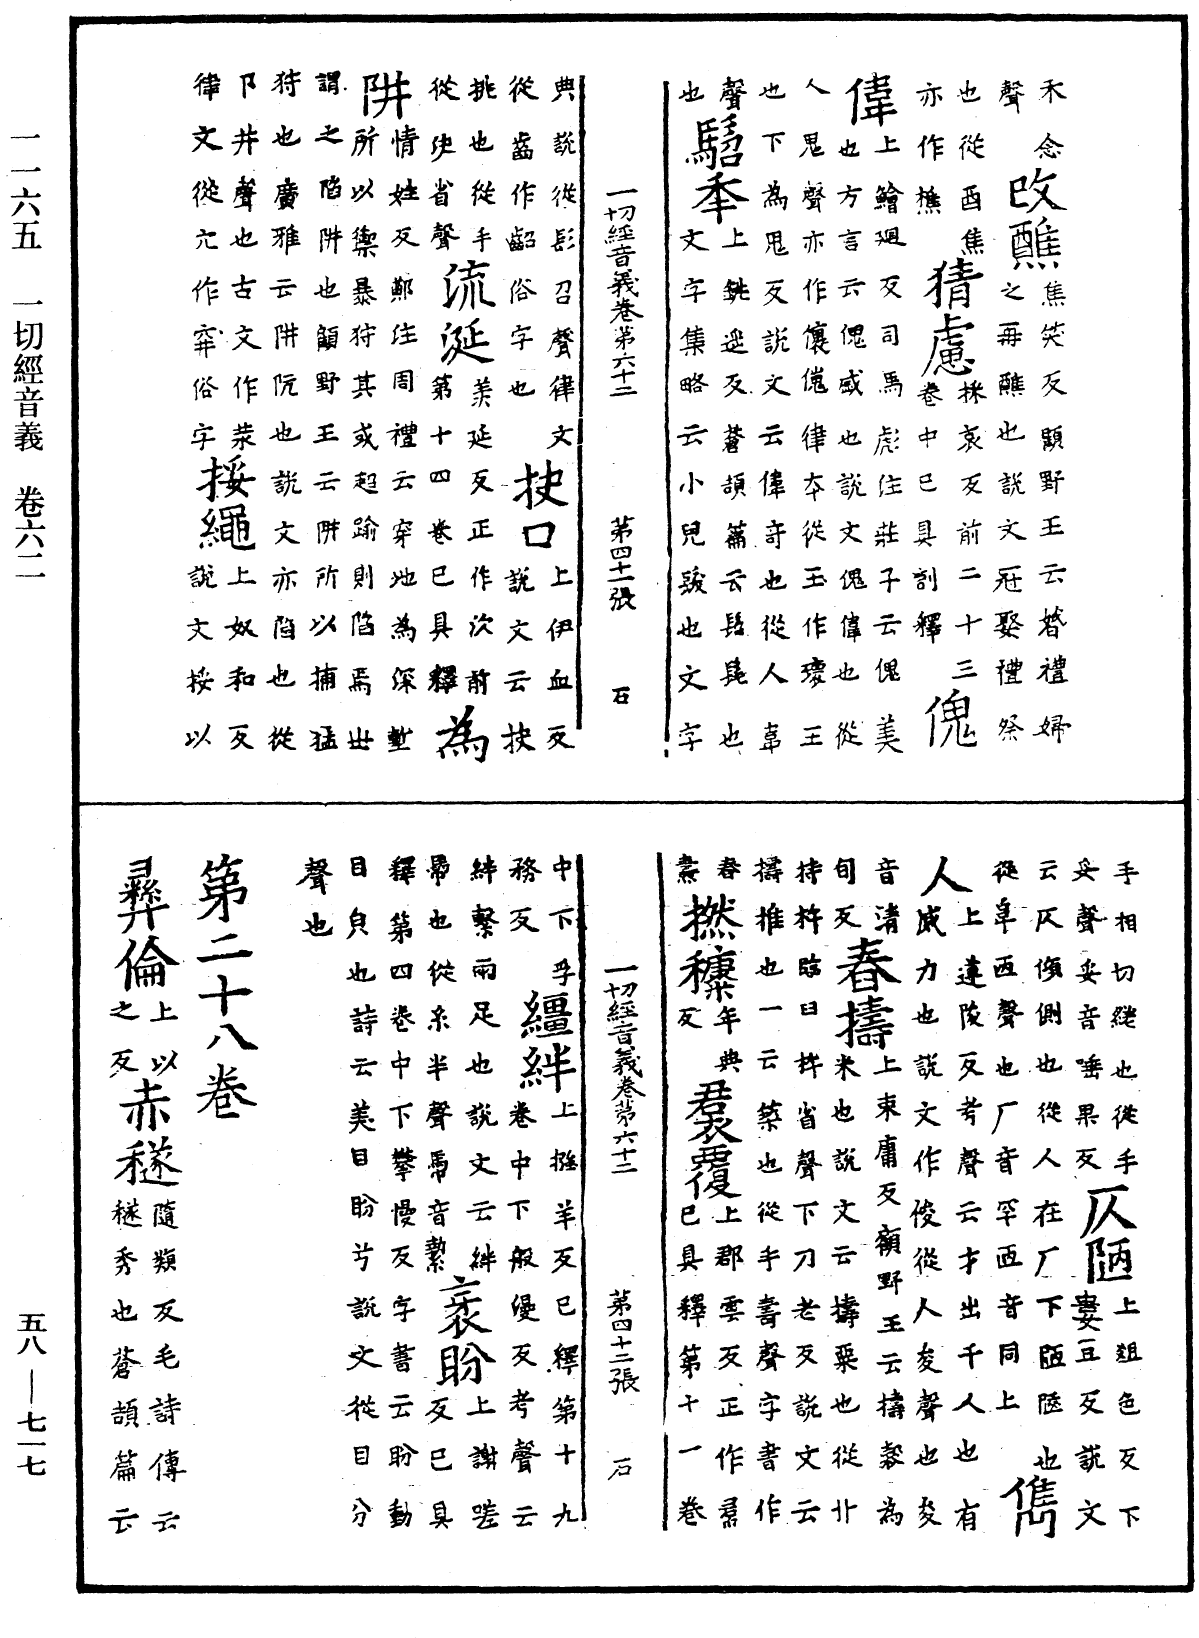 禾
聲
改醮
焦笑反顧野王云婚禮婦
之再醮也說文冠娶禮祭
也從酉焦
亦作樵
猜慮
採哀反前二十三
卷中已具訓釋
傀
偉
上鱠迴反司馬彪注莊子云傀美
也方言云傀盛也說文傀偉也從
人鬼聲亦作儴傞律本從玉作瓌王
也下為鬼反說文云偉奇也從人韋
聲
也
髫年
上銚遥反蒼頡篇云髫髦也
文字集略云小兒髮也文字
一切經音義卷第六十二 第四十一張 石
典說從髟召聲律文
從齒作齠俗字也
抉口
上伊血反
說文云抉
挑也從手
從決省聲
流涎
羨延反正作㳄前
第十四卷已具釋
為
阱
情姓反鄭注周禮云穿地為深塹
所以禦暴狩其或超踰則陷焉世
謂之陷阱也顧野王云阱所以捕猛
狩也廣雅云阱阬也說文亦陷也從
阝井聲也古文作汬
律文從穴作穽俗字
挼繩
上奴和反
說文挼以
手相切縒也從手
妥聲妥音唾果反
仄陋
上緅色反下
婁豆反說文
云仄傾側也從人在厂下陋陿也
從阜㔷聲也厂音罕㔷音同上
儁
人
上遵陵反考聲云才出千人也有
威力也說文作俊從人夋聲也夋
音清
旬反
舂擣
上束庸反顧野王云擣穀為
米也說文云擣粟也從廾
持杵臨臼杵省聲下刀老反說文云
擣推也一云築也從手壽聲字書作
舂
撚穅
年典
反
裠覆
上郡雲反正作帬
已具釋第十一卷
一切經音義卷第六十二 第四十二張 石
中下孚
務反
繮絆
上掓羊反已釋第十九
卷中下般縵反考聲云
絆繫兩足也說文云絆
馽也從糸半聲馽音縶
袤盼
上謝嗟
反已具
釋第四卷中下攀慢反字書云盼動
目皃也詩云美目盼兮說文從目分
聲也
第二十八卷
彞倫
上以
之反
赤穟
隨類反毛詩傳云
穟秀也蒼頡篇云
一一六五 一切經音義 卷六二
五八—七一七